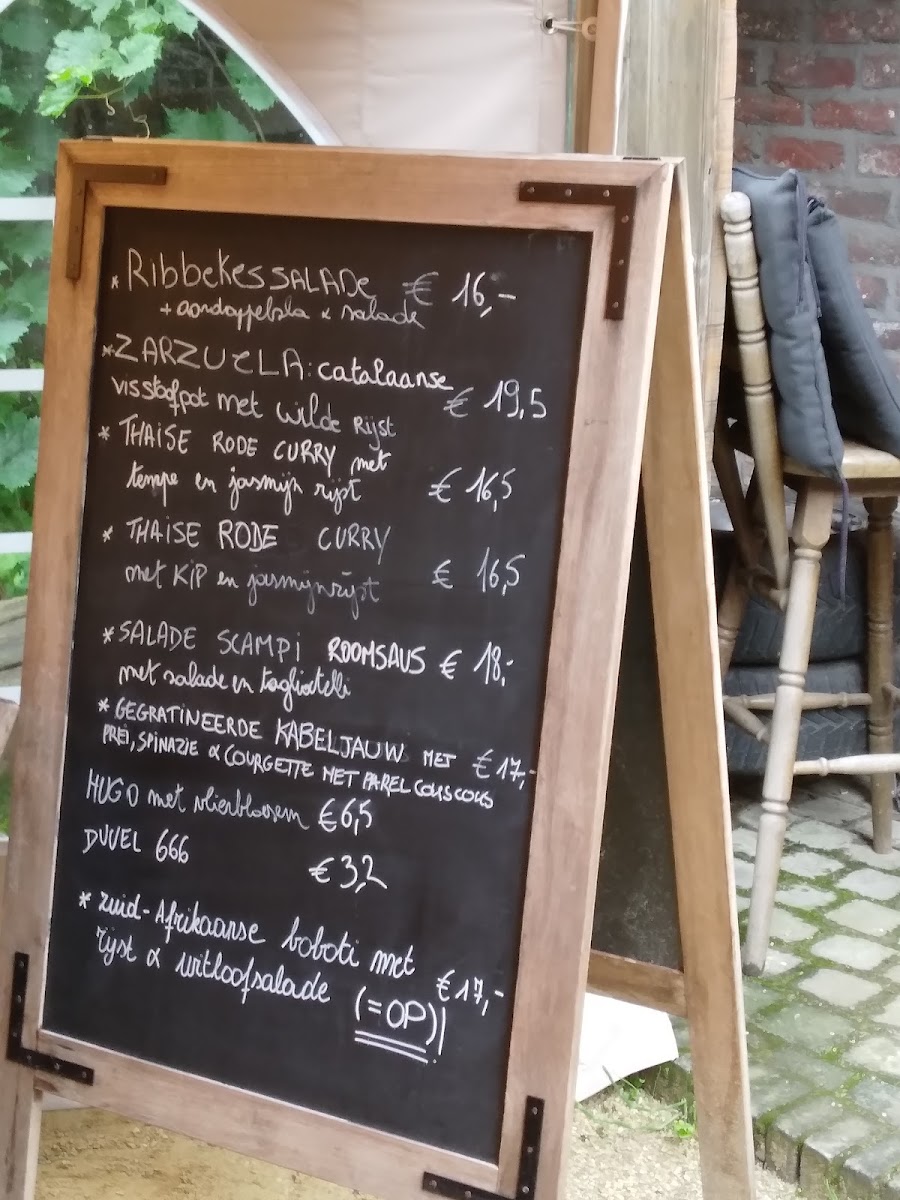 * RibbekesSALADe € 16,-
+ aardappelsla & salade
* ZARZUELA: catalaanse
visstoofpot met wilde Rijst € 19,5
* THAISE RODE CURRY met
tempe en jasmijn rijst € 16,5
* THAISE RODE CURRY
met KiP en jasmijnrijst € 16,5
* SALADE SCAMPi ROOMSAUS € 18,-
met salade en tagliatelli
* GEGRATINEERDE KABELJAUW MET € 17,-
PREi, SPINAZIE & COURGETTE MET PAREL COUSCOUS
HUGO met vlierbloesem € 6,5
DUVEL 666 € 3,2
* Zuid-Afrikaanse boboti met
rijst & witloofsalade € 17,-
(= OP)!